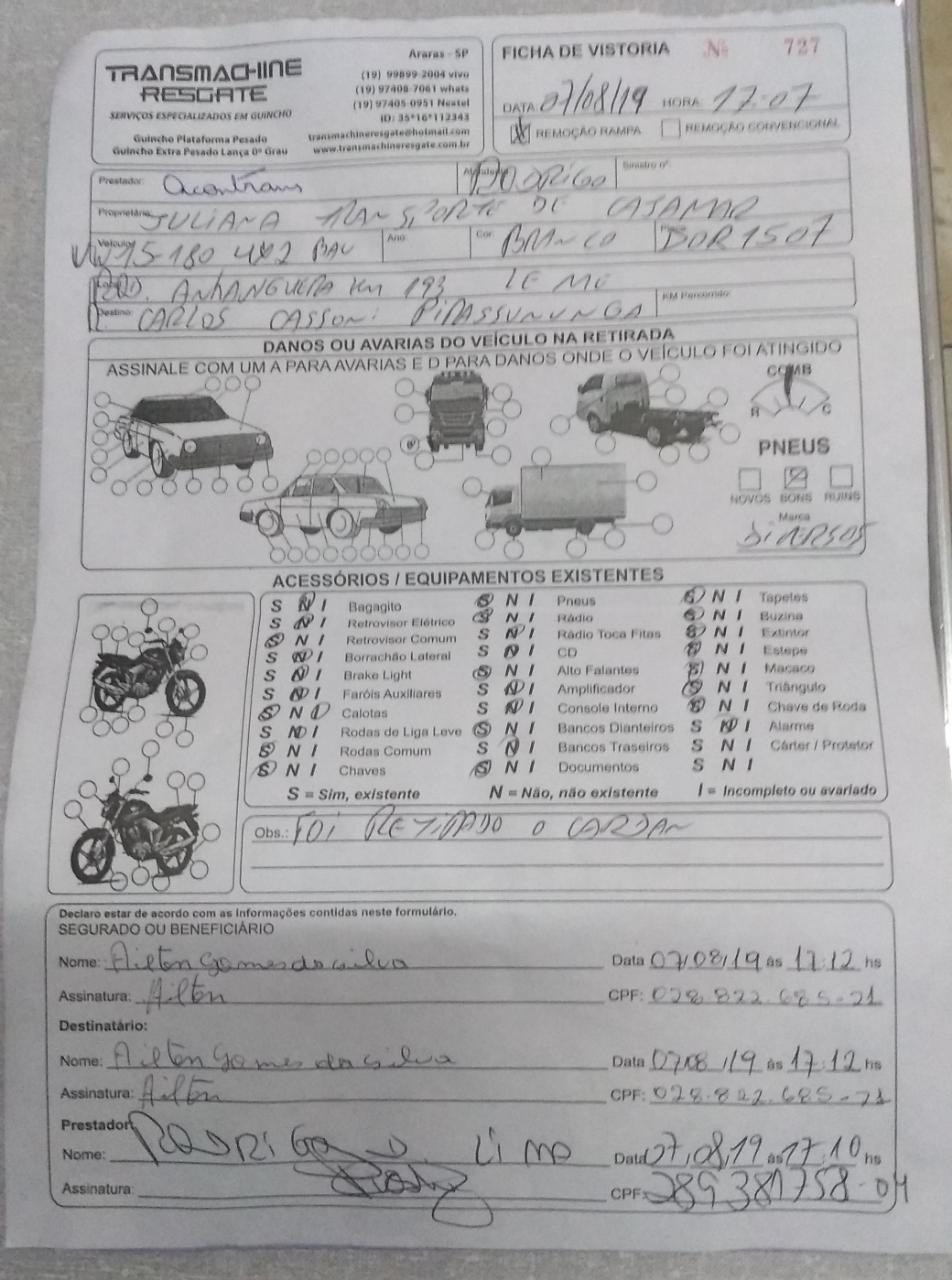 TRANSMACHINE
RESGATE
SERVIÇOS ESPECIALIZADOS EM GUINCHO
Guincho Plataforma Pesado
Guincho Extra Pesado Lança 0º Grau
Araras - SP
(19) 99899-2004 vivo
(19) 97408-7061 whats
(19) 97405-0951 Nextel
ID: 35*16*112343
transmachineresgate@hotmail.com
www.transmachineresgate.com.br
FICHA DE VISTORIA Nº 727
DATA 07/08/19 HORA: 17:07
REMOÇÃO RAMPA REMOÇÃO CONVENCIONAL
Prestador: Acontrans RODRIGO Sinistro nº
Proprietário: JULIANA TRANSPORTE DE CAJAMAR
Veículo: VW 15-180 4x2 BAU Ano: Cor: BRANCO
ROD. ANHANGUERA Km 193 LEME
Destino: CARLOS CASSONI PIRASSUNUNGA KM Percorrido:
DANOS OU AVARIAS DO VEÍCULO NA RETIRADA
ASSINALE COM UM A PARA AVARIAS E D PARA DANOS ONDE O VEÍCULO FOI ATINGIDO
COMB
R C
PNEUS
NOVOS BONS RUINS
Marca
DIVERSOS
ACESSÓRIOS / EQUIPAMENTOS EXISTENTES
S N I Bagagito S N I Pneus S N I Tapetes
S N I Retrovisor Elétrico S N I Rádio S N I Buzina
S N I Retrovisor Comum S N I Rádio Toca Fitas S N I Extintor
S N I Borrachão Lateral S N I CD S N I Estepe
S N I Brake Light S N I Alto Falantes S N I Macaco
S N I Faróis Auxiliares S N I Amplificador S N I Triângulo
S N I Calotas S N I Console Interno S N I Chave de Roda
S N I Rodas de Liga Leve S N I Bancos Dianteiros S N I Alarme
S N I Rodas Comum S N I Bancos Traseiros S N I Cárter / Protetor
S N I Chaves S N I Documentos S N I
S = Sim, existente N = Não, não existente I = Incompleto ou avariado
Obs.: FOI RETIRADO O CARDAN
Declaro estar de acordo com as informações contidas neste formulário.
SEGURADO OU BENEFICIÁRIO
Nome: Ailton Gomes da silva Data 07/08/19 às 17:12 hs
Assinatura: Ailton CPF: 028.822.685-21
Destinatário:
Nome: Ailton Gomes da silva Data 07/08/19 às 17:12 hs
Assinatura: Ailton CPF: 028.822.685-21
Prestador
Nome: RODRIGO D. Lima Data 07,08,19 às 17:10 hs
Assinatura: CPF: 289381758-04